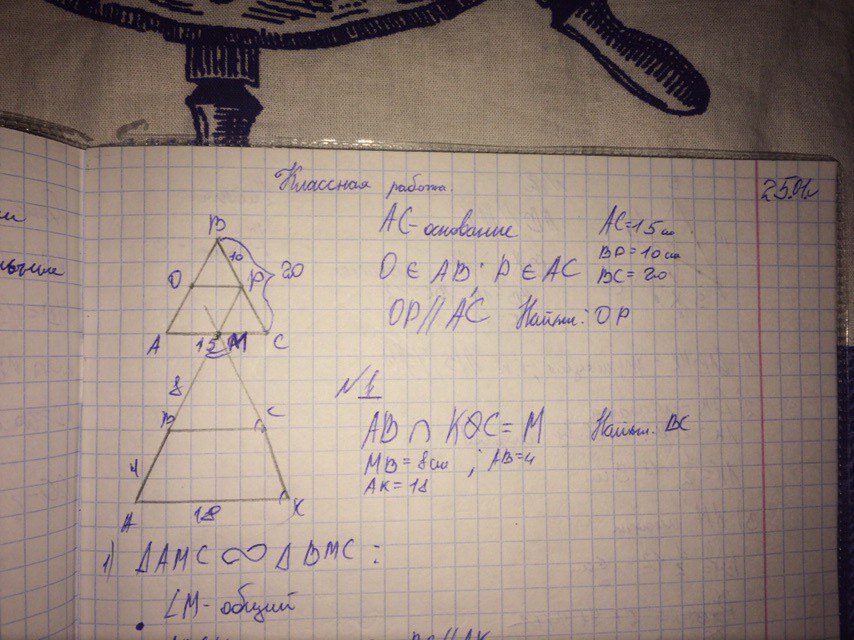 Классная работа.
25.01.
B
10
20
O
P
A
15
M
C
AC-основание
AC=15см
O ∈ AB; P ∈ AC
BP=10см
BC=20
OP // AC
Найти: OP
8
B
C
4
A
18
K
N 1
AB ∩ KC = M
Найти. BC
MB=8см ; AB=4
AK=18
1) ΔAMC ∞ ΔBMC :
∠M-общий
BC // AK